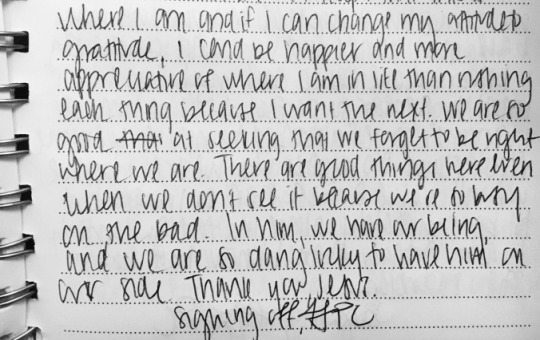 where I am and if I can change my attitude to
gratitude, I cand be happier and more
appreciative of where I am in life than nothing
each thing because I want the next. We are so
good that at seeking that we forget to be right
where we are. There are good things here even
when we don't see it because we're so busy
on the bad. In him, we have our being,
and we are so dang lucky to have him on
our side. Thank you Jesus.
Signing off,